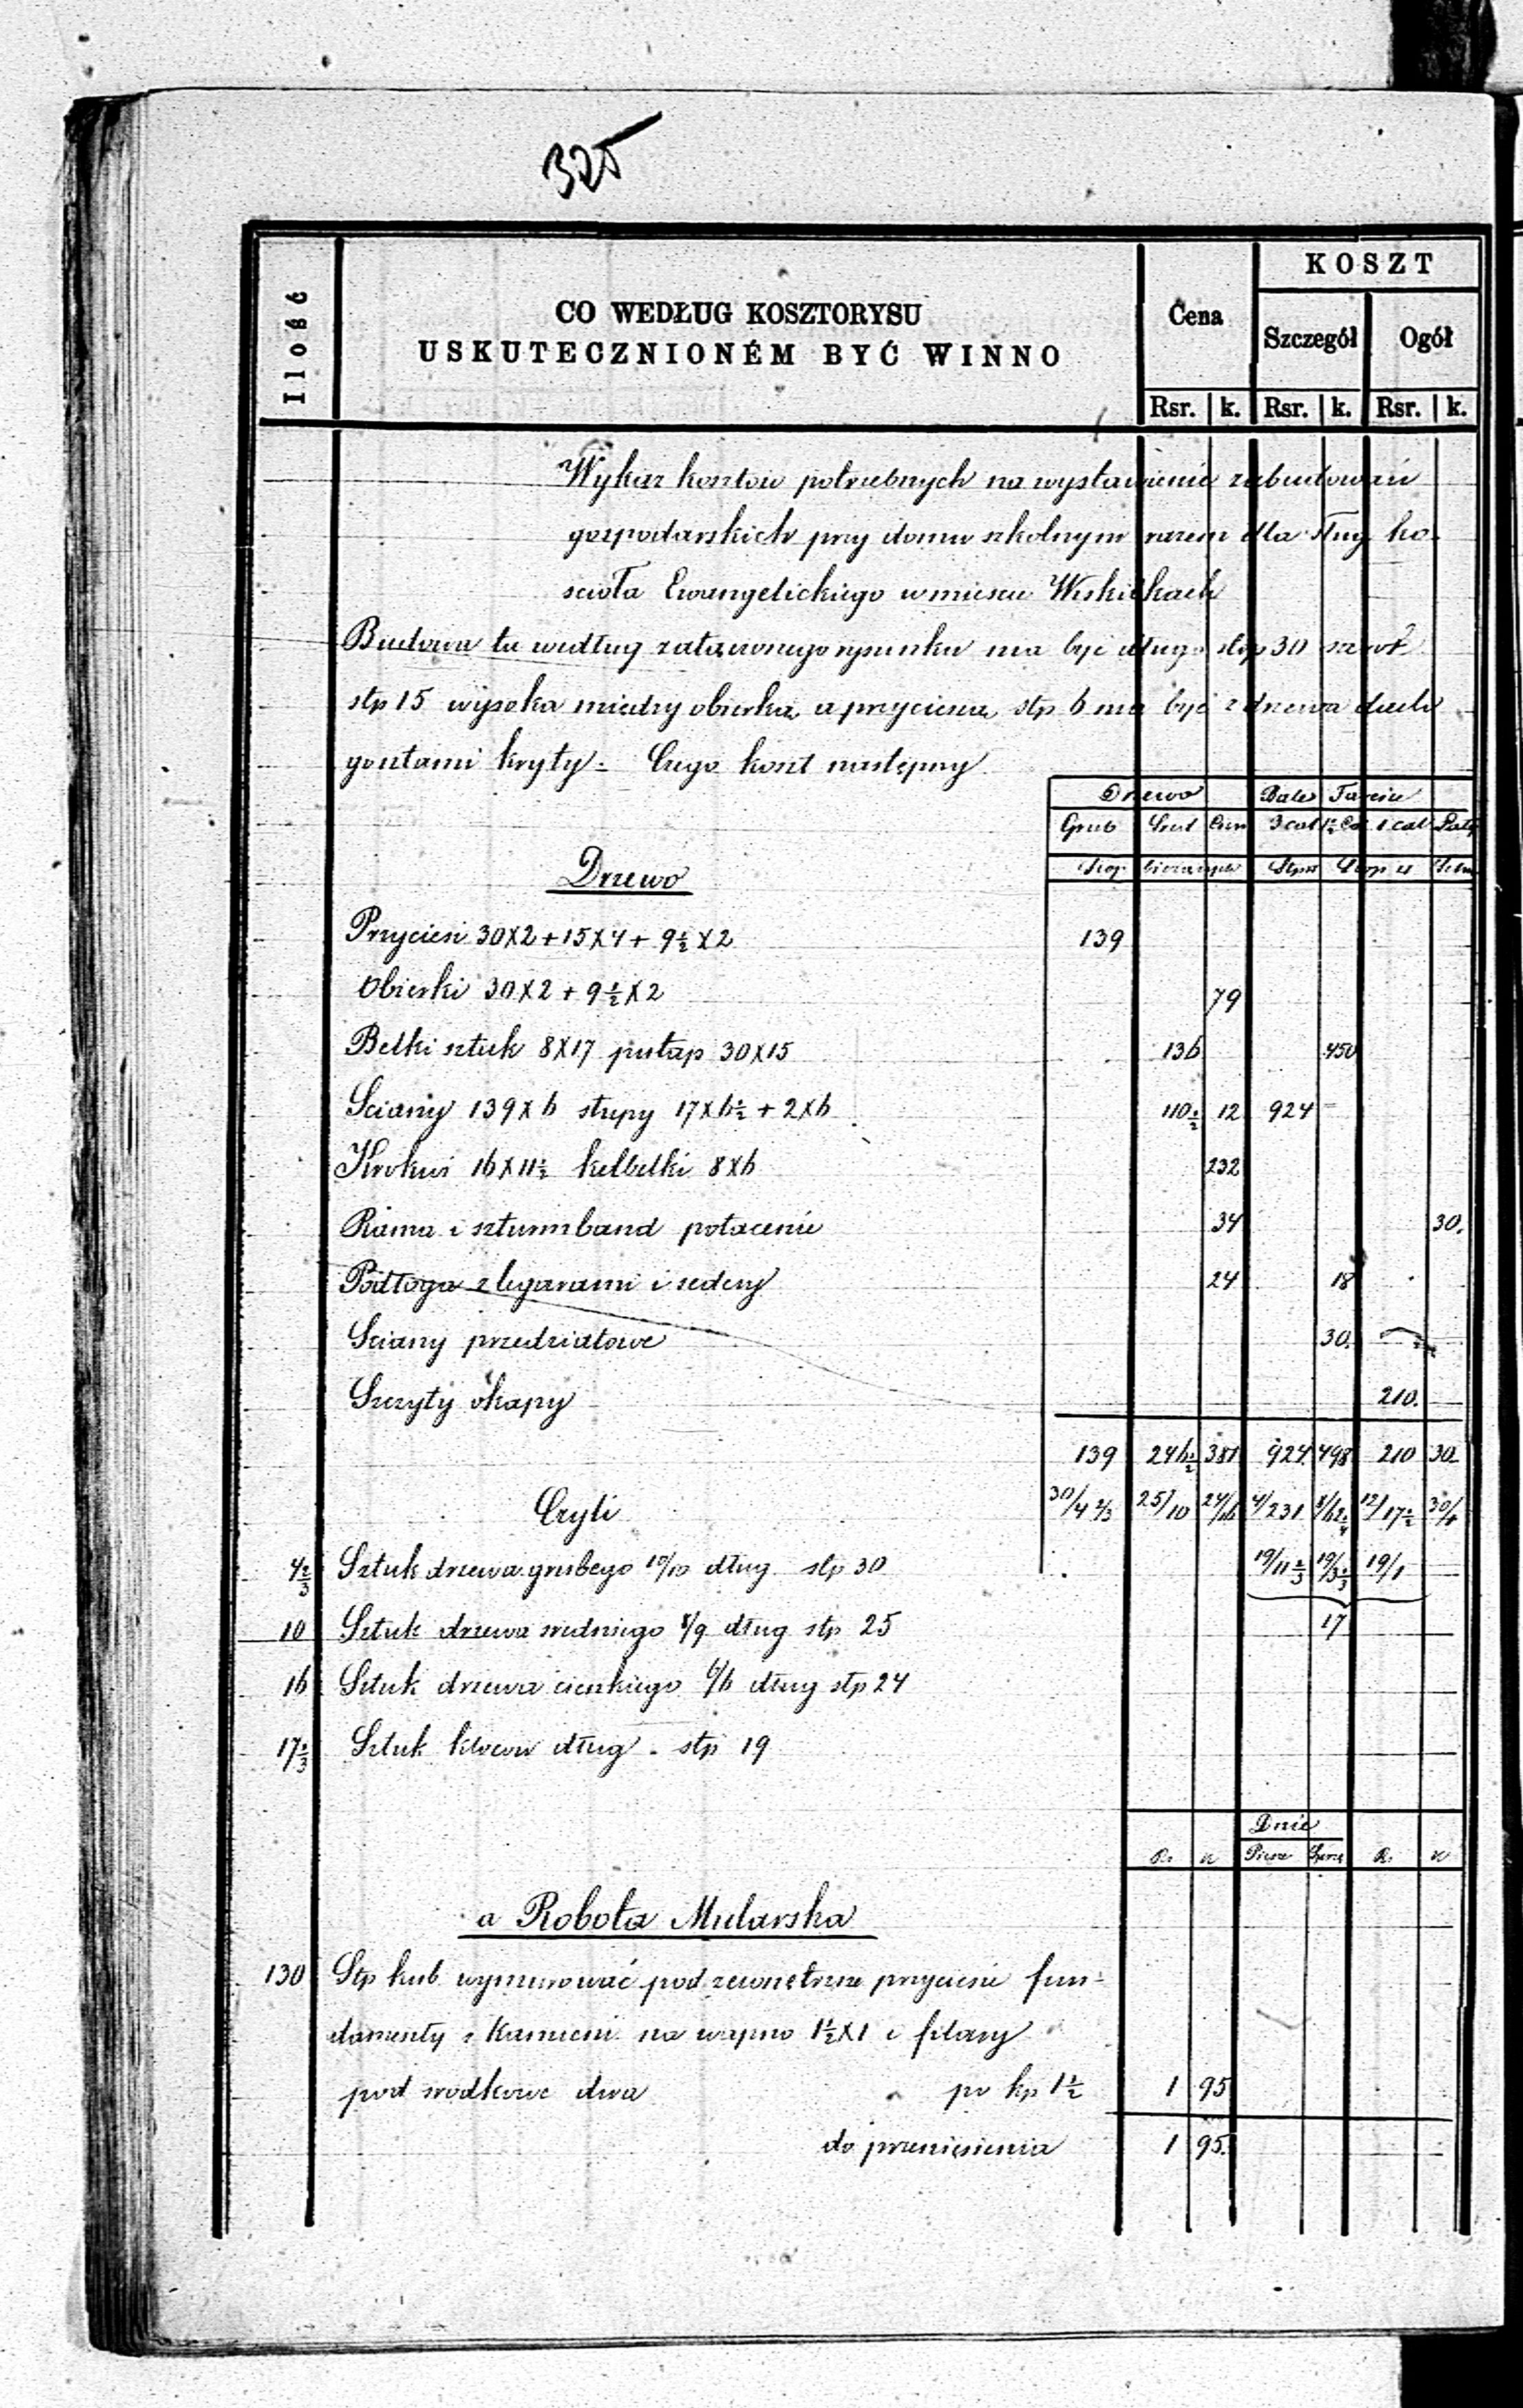 325
Ilość
CO WEDŁUG KOSZTORYSU
USKUTECZNIONÉM BYĆ WINNO
Cena
KOSZT
Szczegół Ogół
Rsr. k. Rsr. k. Rsr. k.
Wykaz kosztów potrzebnych na wystawienie zabudowań
gospodarskich przy domu szkolnym razem dla sług ko-
scioła Ewangelickiego w miescie Wiskitkach
Budowa ta według załączonego rysunku ma być długa stóp 30 szerok
stp 15 wysoka miedzy obierką a przyciesią stp 6 ma być z drzewa dach
gontami kryty - Czego koszt następny
Drzewo Bale Tarcice
Grub Sred Cien 3 cal 1½ cal 1 cal Łaty
Stop bieżących Stp Stop Sztu
Drzewo
Przyciesi 30X2+15X4+9½X2 139
Obierki 30X2+9½X2 79
Belki sztuk 8X17 pułap 30X15 136 450
Sciany 139X6 słupy 17X6½+2X6 110½ 12 924
Krokwi 16X11½ kelbelki 8X6 232
Rama i szturmband połacenie 34 30.
Podłoga z legarami i sedesy 24 18
Sciany przedziałowe 30.
Szczyty okapy 210.
139 246½ 381 924 498 210 30
Czyli 30/4⅔ 25/10 24/16 4/231 8/62¼ 12/17½ 30/1
4⅔ Sztuk drzewa grubego 10/10 dług stp 30 19/11⅔ 19/3⅓ 19/1
10 Sztuk drzewa sredniego 8/9 dług stp 25 17
16 Sztuk drzewa cienkiego 6/6 dług stp 24
17⅓ Sztuk klocow dług - stp 19
Dnie
R. k Piesze Sprzę R. k
a Robota Mularska
130 Stp kub wymurować pod zewnętrzne przyciesie fun-
damenty z Kamieni na wapno 1½X1 i filary
pod srodkowe dwa po kp 1½ 1 95
do przeniesienia 1 95.